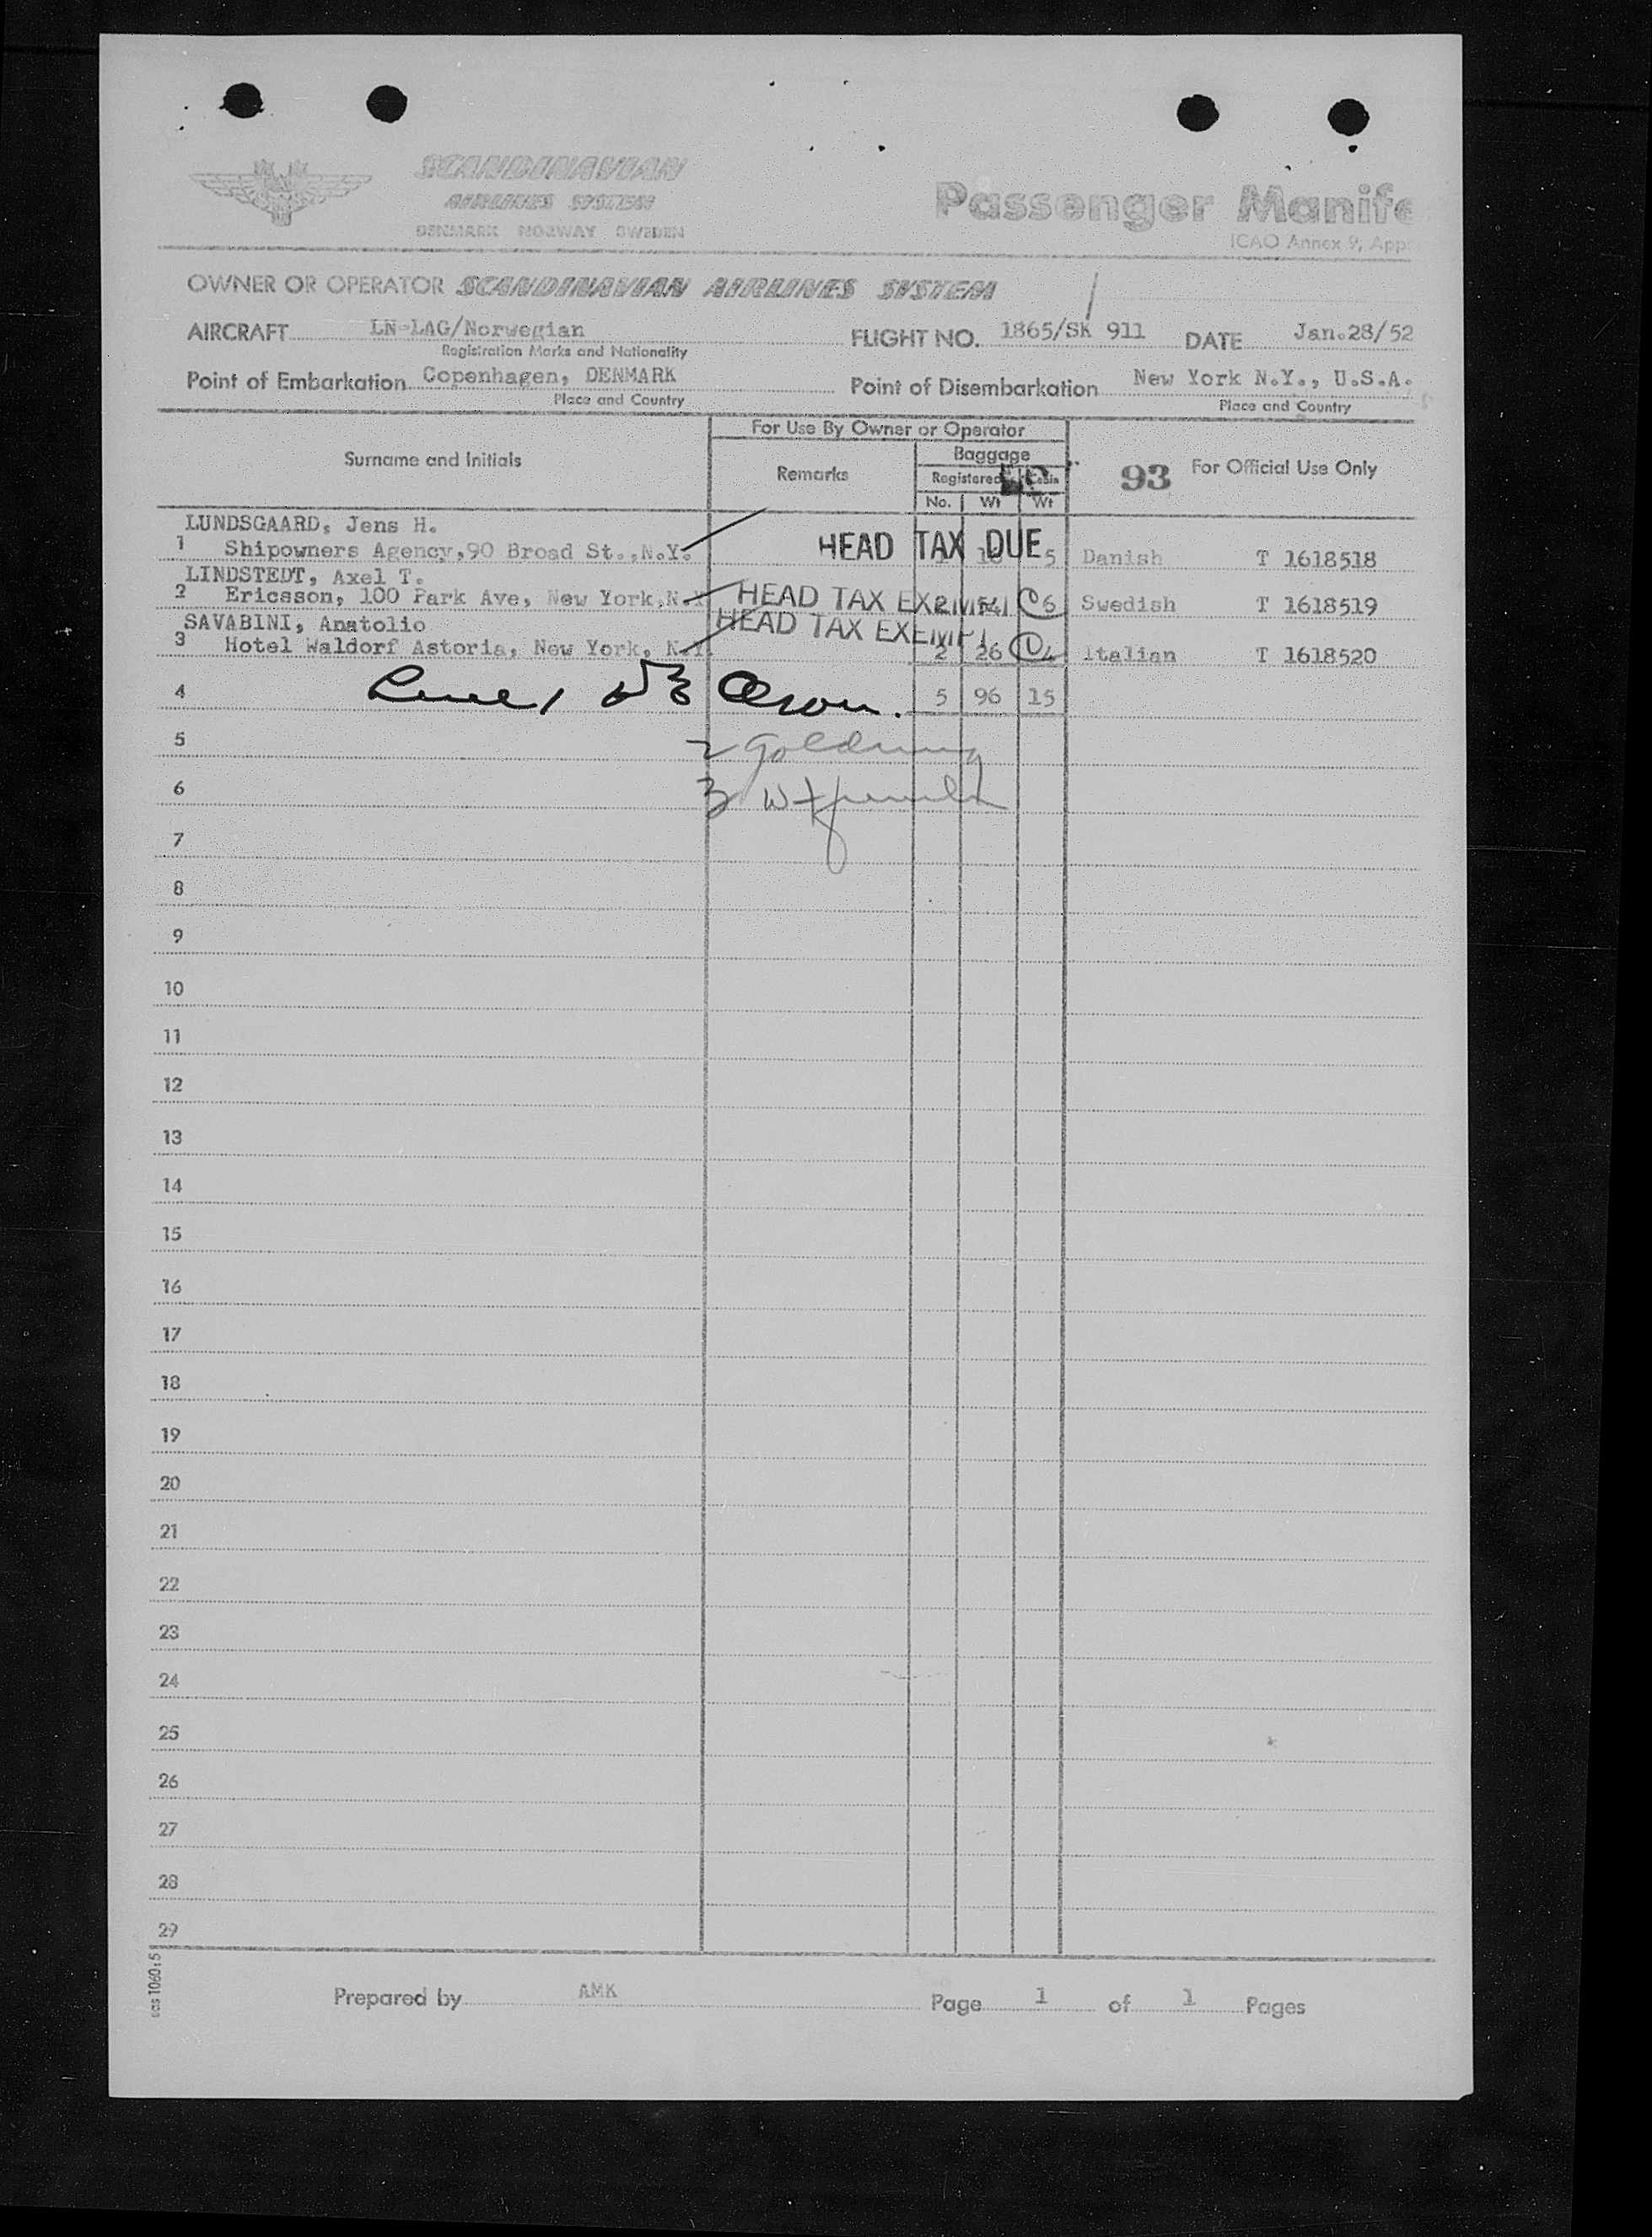 SCANDINAVIAN
AIRLINES SYSTEM
DENMARK NORWAY SWEDEN
Passenger Manife
ICAO Annex 9, App
OWNER OR OPERATOR SCANDINAVIAN AIRLINES SYSTEM
AIRCRAFT LN-LAG/Norwegian FLIGHT NO. 1865/SK 911 DATE Jan.28/52
Registration Marks and Nationality
Point of Embarkation Copenhagen, DENMARK Point of Disembarkation New York N.Y., U.S.A.
Place and Country Place and Country
For Use By Owner or Operator
Surname and Initials Remarks Baggage 93 For Official Use Only
Registered Cabin
No. Wt Wt
LUNDSGAARD, Jens H.
1 Shipowners Agency,90 Broad St.,N.Y. HEAD TAX DUE 5 Danish T 1618518
LINDSTEDT, Axel T.
2 Ericsson, 100 Park Ave, New York,N.Y HEAD TAX EXEMPT 2 6 Swedish T 1618519
SAVABINI, Anatolio HEAD TAX EXEMPT
3 Hotel Waldorf Astoria, New York, N.Y. 2 26 4 Italian T 1618520
4 Olson. 5 96 15
5 2 Goldring
6 3
7
8
9
10
11
12
13
14
15
16
17
18
19
20
21
22
23
24
25
26
27
28
29
sas 1060:5
Prepared by AMK Page 1 of 1 Pages